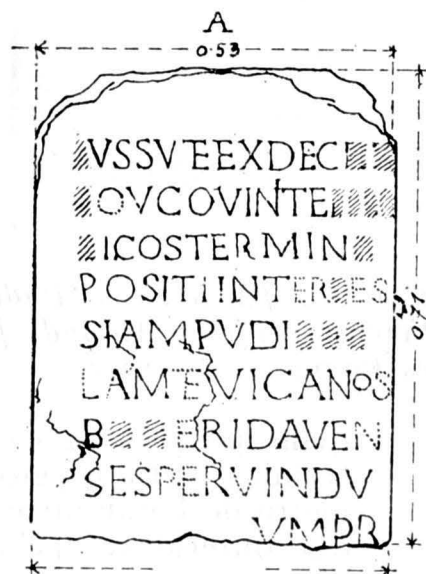 A
0.53
VSSVEEXDEC
OVCOVINTE
ICOSTERMIN
POSITIINTER ES
SIAMPVDI
LAMTEVICANOS
B ERIDAVEN
SESPERVINDV
VMPR
0.77